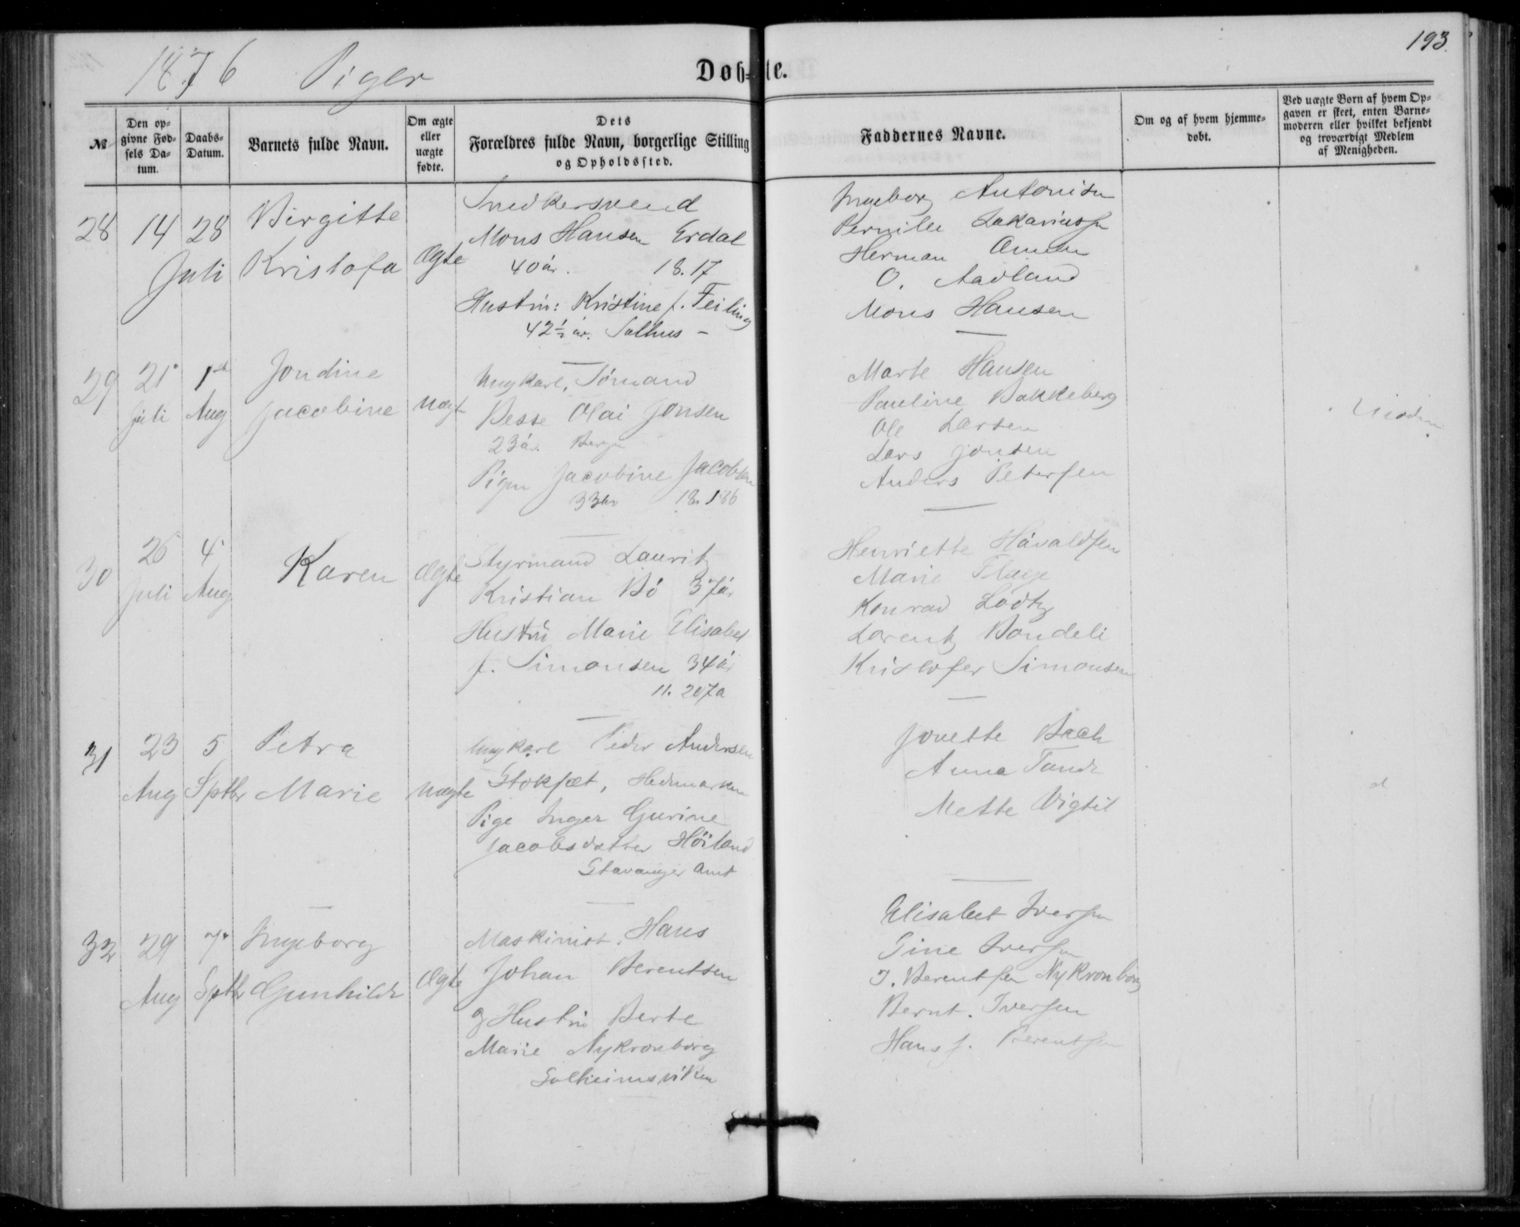 1876 Piger
Døbte.
193.
№
Den op-
givne Fød-
sels Da-
tum.
Daabs-
Datum.
Barnets fulde Navn.
Om ægte
eller
uægte
fødte.
Dets
Forældres fulde Navn, borgerlige Stilling
og Opholdssted.
Faddernes Navne.
Om og af hvem hjemme-
døbt.
Ved uægte Børn af hvem Op-
gaven er skeet, enten Barne-
moderen eller hvilket bekjendt
og troværdigt Medlem
af Menigheden.
28
14
Juli
28
Birgitte
Kristofa
Ægte
Snedkersvend
Mons Hansen Erdal
40 år. 18.17
Hustru: Kristine f. Feiling
42½ år. Salhus -
Ingeborg Antonisen
Pernille Zakariassen
Herman
O. Aadland
Mons Hansen
29
21
Juli
1
Aug
Jondine
Jacobine
Uægte
Ungkarl, Sømand
Besse Olai Jonsen
23 år. Bergen
Pigen Jacobine Jacobsen
33 år 18.186
Marte Hansen
Pauline Bakkeberg
Ole Larsen
Lars Jonsen
Anders Petersen
30
25
Juli
4
Aug
Karen
Ægte
Styrmand Lauritz
Kristian Bö 37 år
Hustru Marie Elisabet
f. Simonsen 34 år
11. 207a
Henriette Håvaldsen
Marie
Konrad Lödtz
Lorentz Bondeli
Kristofer Simonsen
31
23
Aug
5
Sptbr
Petra
Marie
Uægte
Ungkarl Peder Andersen
Stokset, Hedmarken
Pige Inger Gurine
Jacobsdatter Höiland
Stavanger Amt
Jonette Bach
Anna Tande
Mette Vigtil
32
29
Aug
7
Sptbr
Ingeborg
Gunhilde
Ægte
Maskinist. Hans
Johan Berentsen
og Hustru Berte
Marie Nykronborg
Solheimsviken
Elisabet Iversen
Sine Iversen
J. Berentsen Nykronborg
Bernt. Iversen
Hans J. Berentsen